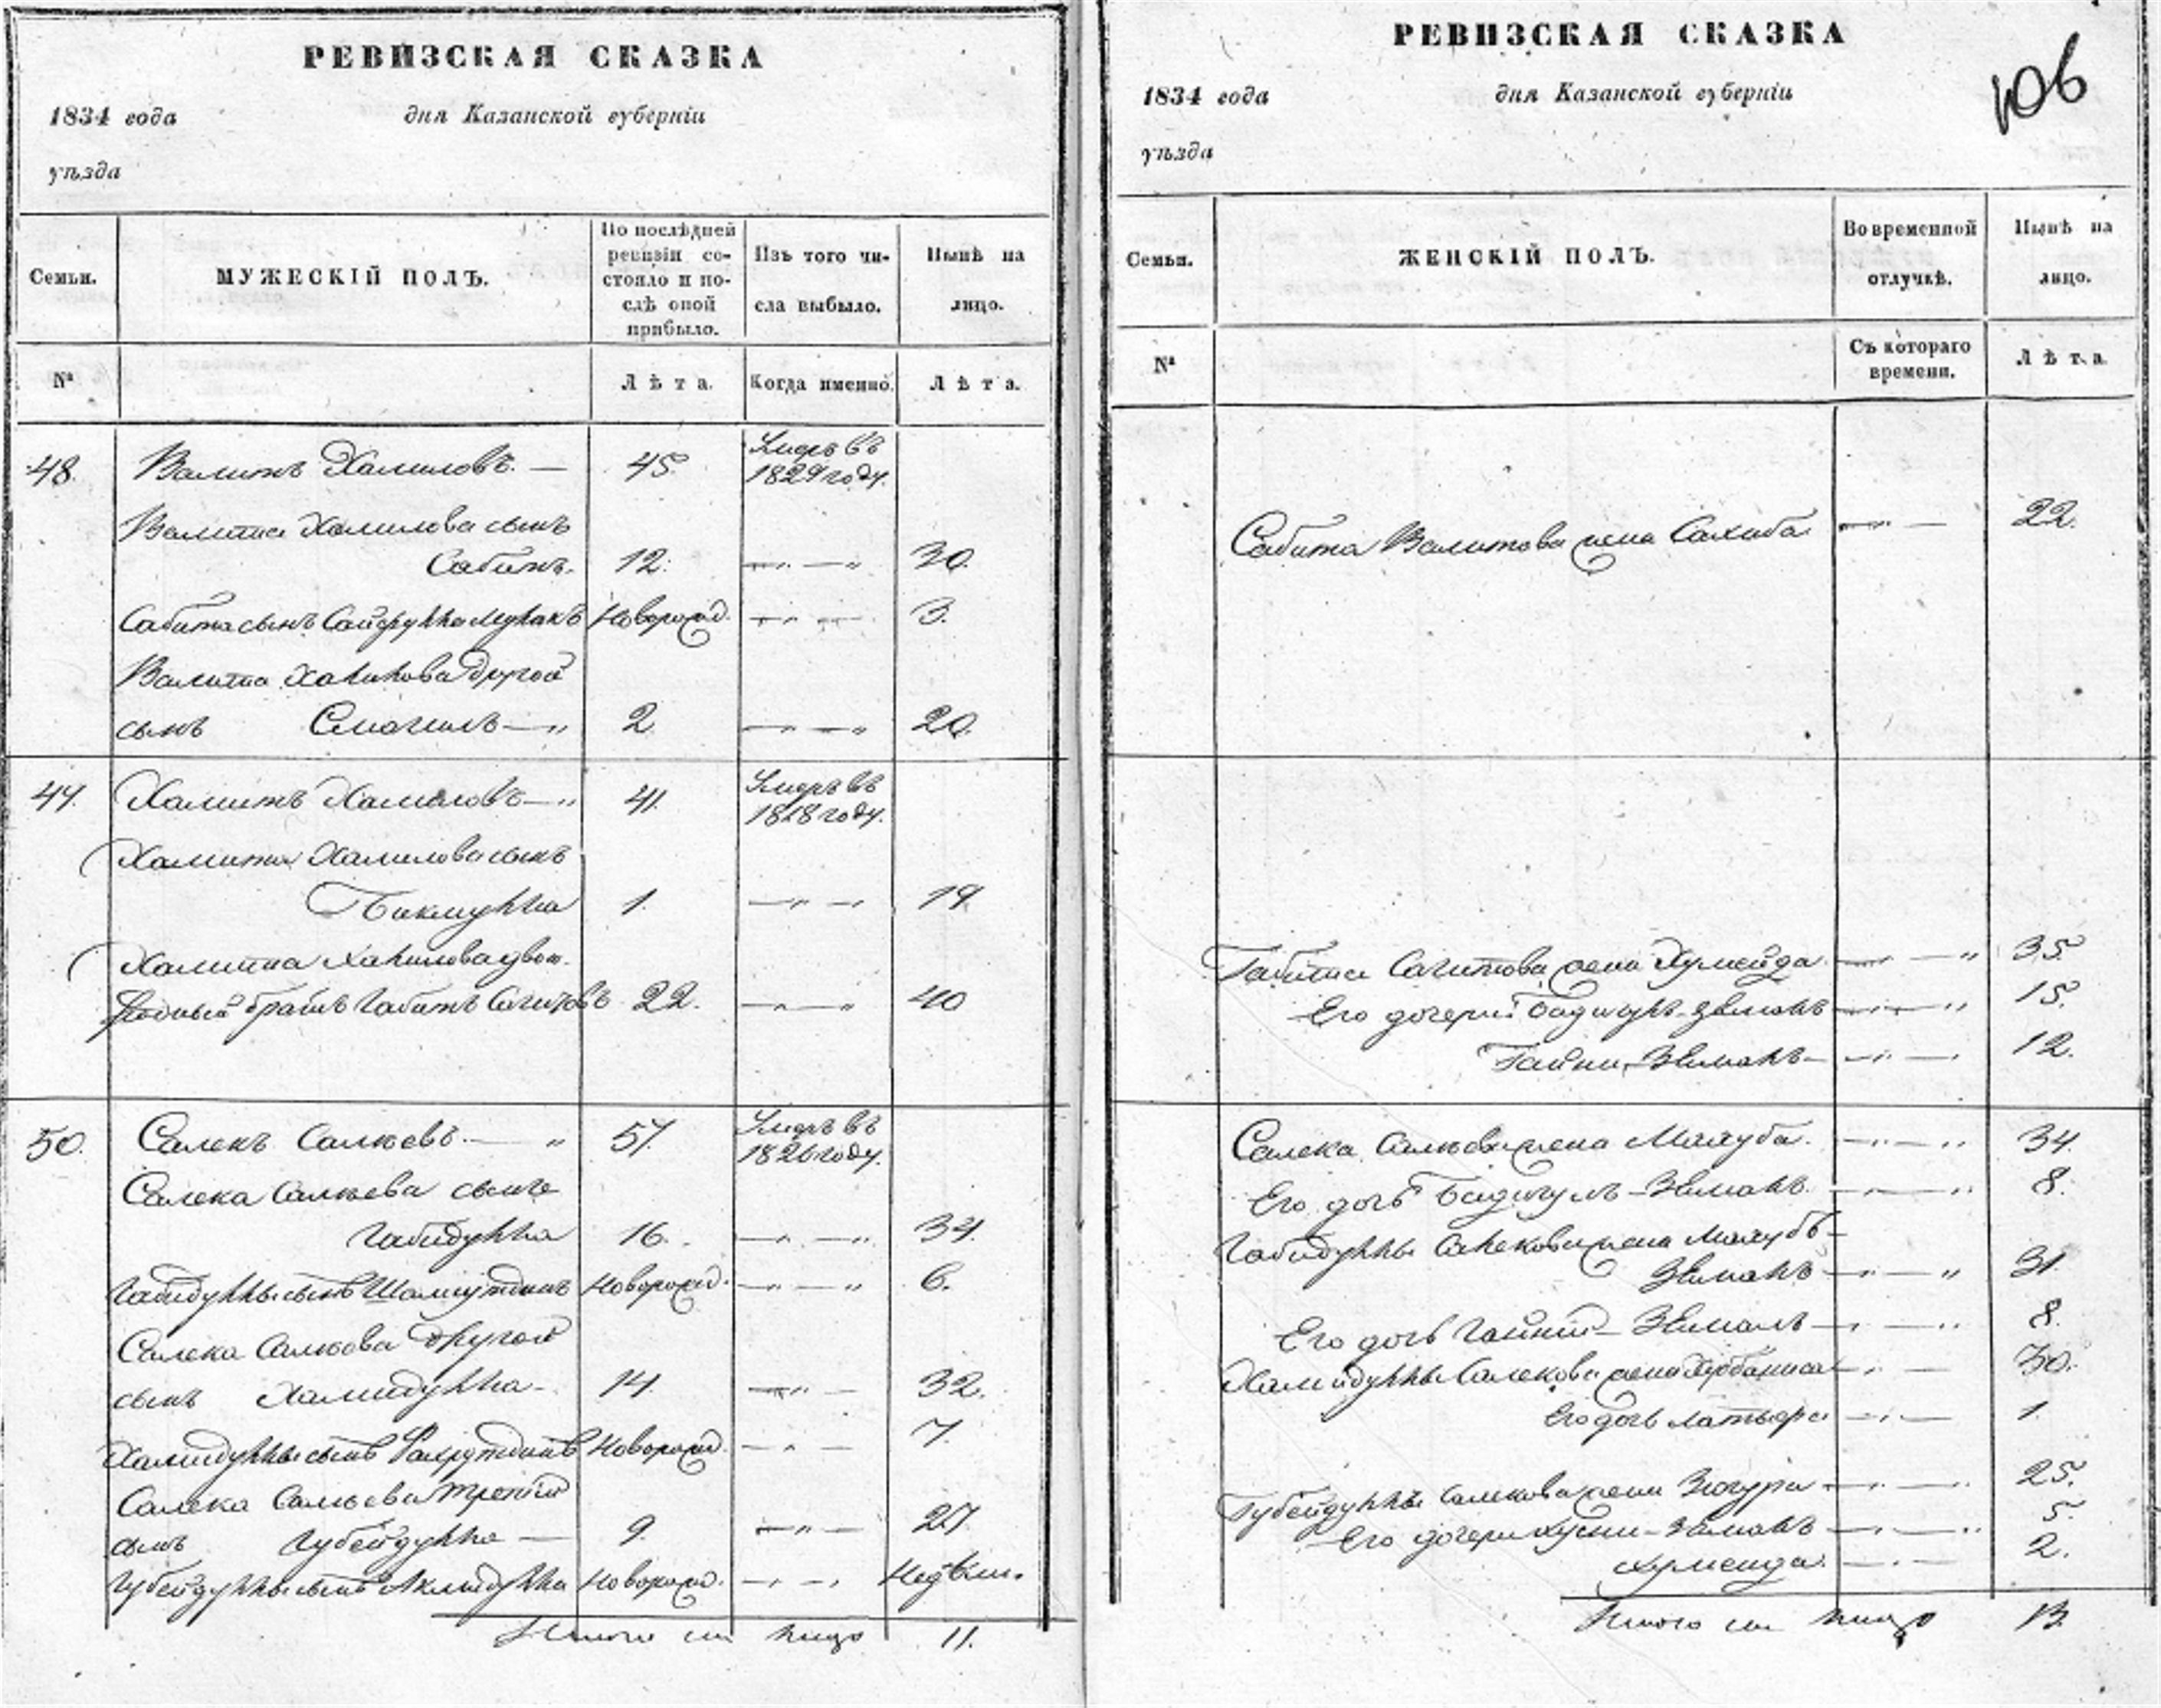 РЕВИЗСКАЯ СКАЗКА
1834 года дня Казанской губерніи
уѣзда
Семьи. МУЖЕСКІЙ ПОЛЪ. По послѣдней ревизіи состояло и послѣ оной прибыло. Изъ того числа выбыло. Нынѣ на лицо.
№ Лѣта. Когда именно. Лѣта.
48. Валитъ Халиловъ. — 45. Умеръ въ 1829 году.
Валита Халилова сынъ
Сабитъ. 12. — „ — „ 30.
Сабита сынъ Сайфуллмулюкъ Новорожд. — „ — 3.
Валита Халилова другой
сынъ Смагилъ — „ 2 — „ — „ 20.
49. Халитъ Халиловъ — „ 41. Умеръ въ 1818 году.
Халита Халилова сынъ
Бикмулла 1. — „ — 19.
Халита Халилова двою-
родный братъ Габитъ Сагитовъ 22. — „ — „ 40
50. Салекъ Салеевъ. — „ 57. Умеръ въ 1826 году.
Салека Салеева сынъ
Габидулла 16. — „ — „ 34.
Габидуллы сынъ Шамсутдинъ Новорожд. — „ — „ 6.
Салека Салеева другой
сынъ Хамидулла — 14. — „ — 32.
Хамидуллы сынъ Фахрутдинъ Новорожд. — „ — 7.
Салека Салеева третій
сынъ Губейдулла — 9. — „ — 27.
Губейдуллы сынъ Аклидулла Новорожд. — „ — Недѣли.
Итого на лицо 11.
РЕВИЗСКАЯ СКАЗКА
106
1834 года дня Казанской губерніи
уѣзда
Семьи. ЖЕНСКІЙ ПОЛЪ. Во временной отлучкѣ. Нынѣ на лицо.
№ Съ котораго времени. Лѣта.
Сабита Валитова жена Сахиба — „ — 22.
Габита Сагитова жена Хумейда — „ — „ 35.
Его дочери Бадигулъ-Земалъ — „ — „ 15.
Гайни-Земалъ — „ — 12.
Салека Салеева жена Махуба. — „ — „ 34.
Его дочь Бадигулъ-Земалъ. — „ — „ 8.
Габидуллы Салекова жена Махубъ-
Земалъ — „ — „ 31.
Его дочь Гайни-Земалъ — „ — „ 8.
Хамидуллы Салекова жена — „ — 30.
Его дочь — „ — 1.
Губейдуллы Салекова жена Зюгура — „ — „ 25.
Его дочери Хусни-Земалъ — „ — „ 5.
Хумеида. — „ — 2.
Итого на лицо 13.